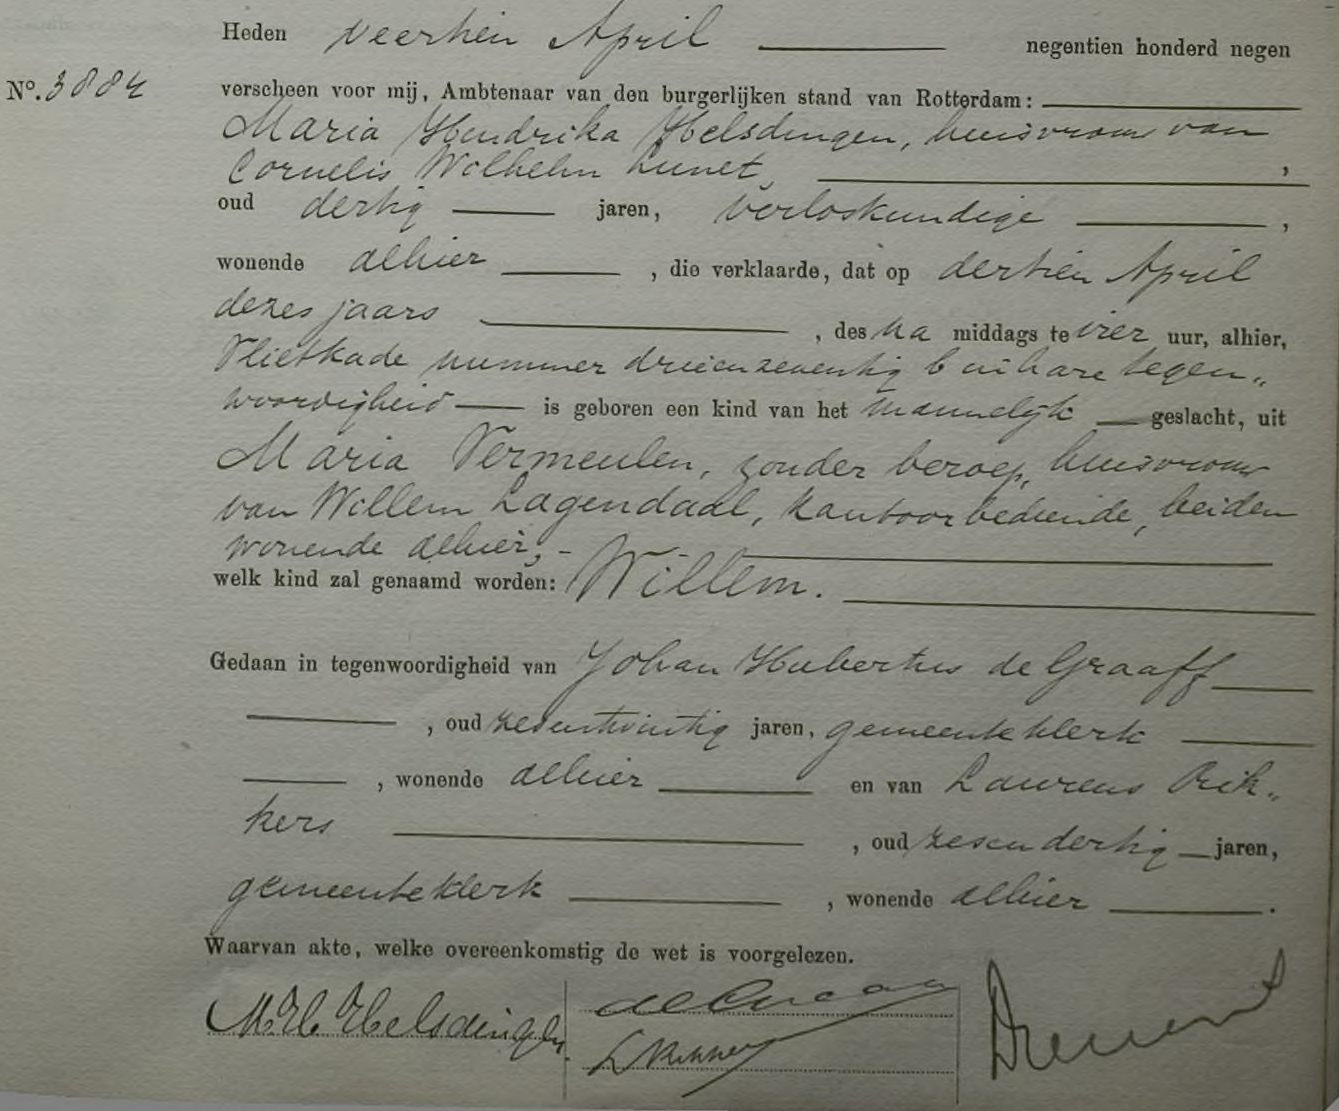 Heden veertien April negentien honderd negen
No. 3884 verscheen voor mij, Ambtenaar van den burgerlijken stand van Rotterdam:
Maria Hendrika Helsdingen, huisvrouw van
Cornelis Wilhelm Lunet,
oud dertig jaren, verloskundige,
wonende alhier, die verklaarde, dat op dertien April
dezes jaars, des na middags te vier uur, alhier,
Vlietkade nummer drieenzeventig b in hare tegen„
woordigheid is geboren een kind van het mannelijk geslacht, uit
Maria Vermeulen, zonder beroep, huisvrouw
van Willem Lagendaal, kantoorbediende, beiden
wonende alhier,
welk kind zal genaamd worden: Willem.
Gedaan in tegenwoordigheid van Johan Hubertus de Graaff
, oud zevenentwintig jaren, gemeenteklerk
, wonende alhier en van Laurens Rik„
kers, oud zesendertig jaren,
gemeenteklerk, wonende alhier.
Waarvan akte, welke overeenkomstig de wet is voorgelezen.
M. H. Helsdingen
de Graaff
L Rikkers